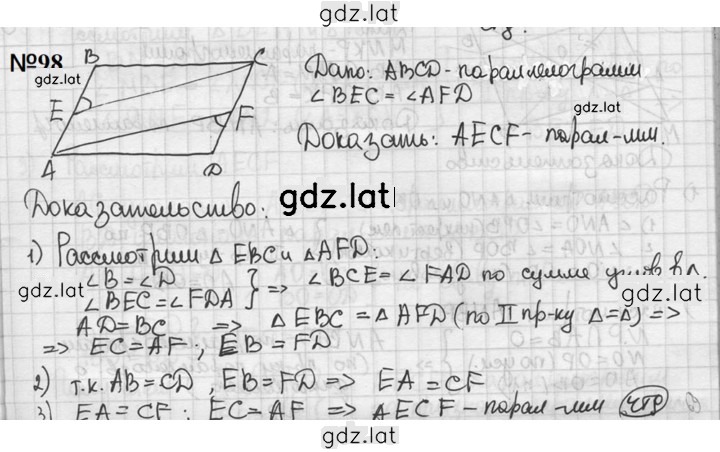 gdz.latl
№98
gdz.lat
B
C
E
F
A
D
Дано: ABCD - параллелограмм
∠BEC = ∠AFD
gdz.lat
Доказать: AECF - парал-мм.
Доказательство:
gdz.lat
1) Рассмотрим △ EBC и △AFD:
∠B = ∠D
∠BEC = ∠FDA } => ∠BCE = ∠FAD по сумме углов в △.
gdz.lat
gdz.lat
AD = BC => △ EBC = △ AFD (по II пр-ку △=△) =>
=> EC = AF ; EB = FD
2) т.к. AB = CD, EB = FD => EA = CF
3) EA = CF ; EC = AF => AECF - парал-мм чтд
gdz.lat